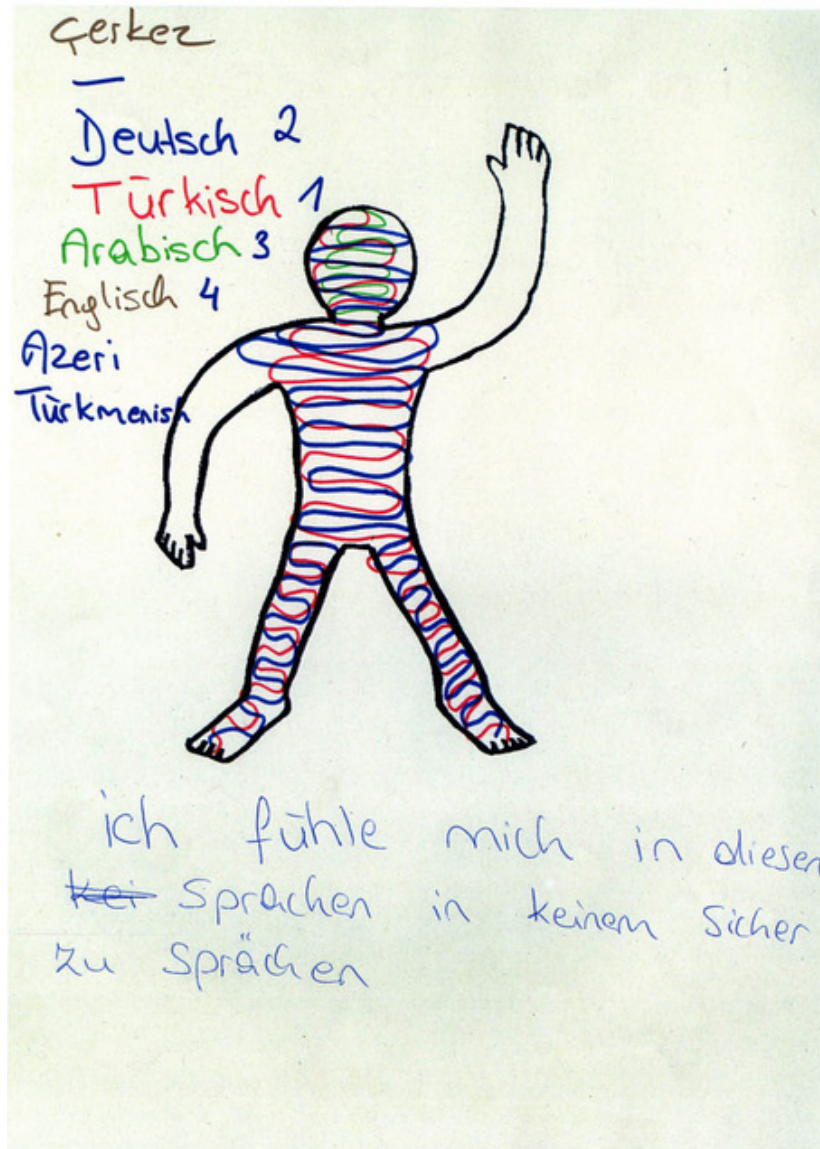 Çerkez
—
Deutsch 2
Türkisch 1
Arabisch 3
Englisch 4
Azeri
Türkmenish
ich fühle mich in diesen
kei Sprachen in keinem Sicher
zu Sprächen